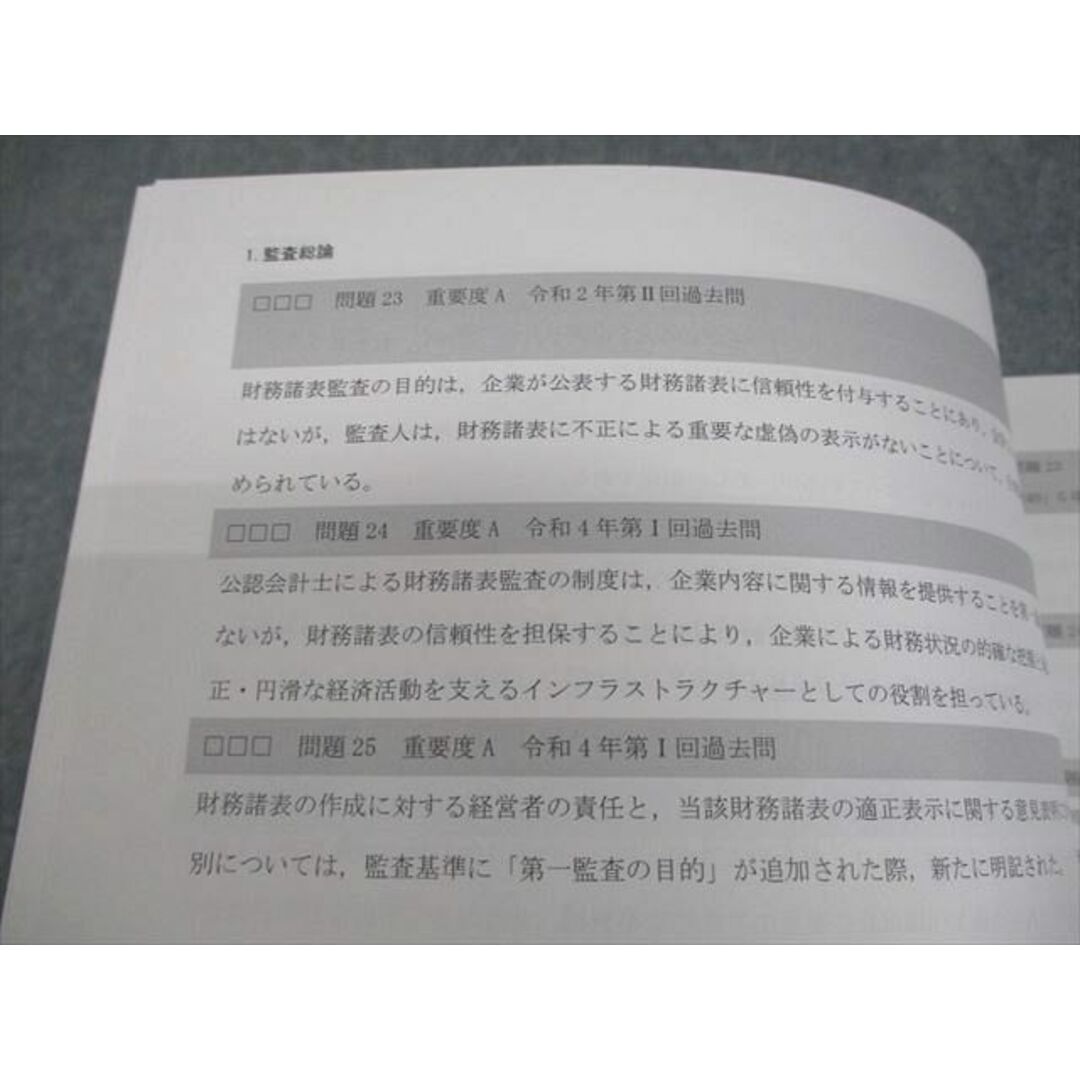 1. 監査総論
□□□ 問題 23 重要度 A 令和 2 年第Ⅱ回過去問
財務諸表監査の目的は，企業が公表する財務諸表に信頼性を付与することにあり，
はないが，監査人は，財務諸表に不正による重要な虚偽の表示がないことについて，
められている。
□□□ 問題 24 重要度 A 令和 4 年第Ⅰ回過去問
公認会計士による財務諸表監査の制度は，企業内容に関する情報を提供することを
ないが，財務諸表の信頼性を担保することにより，企業による財務状況の的確な把握
正・円滑な経済活動を支えるインフラストラクチャーとしての役割を担っている。
□□□ 問題 25 重要度 A 令和 4 年第Ⅰ回過去問
財務諸表の作成に対する経営者の責任と，当該財務諸表の適正表示に関する意見表明
別については，監査基準に「第一監査の目的」が追加された際，新たに明記された。